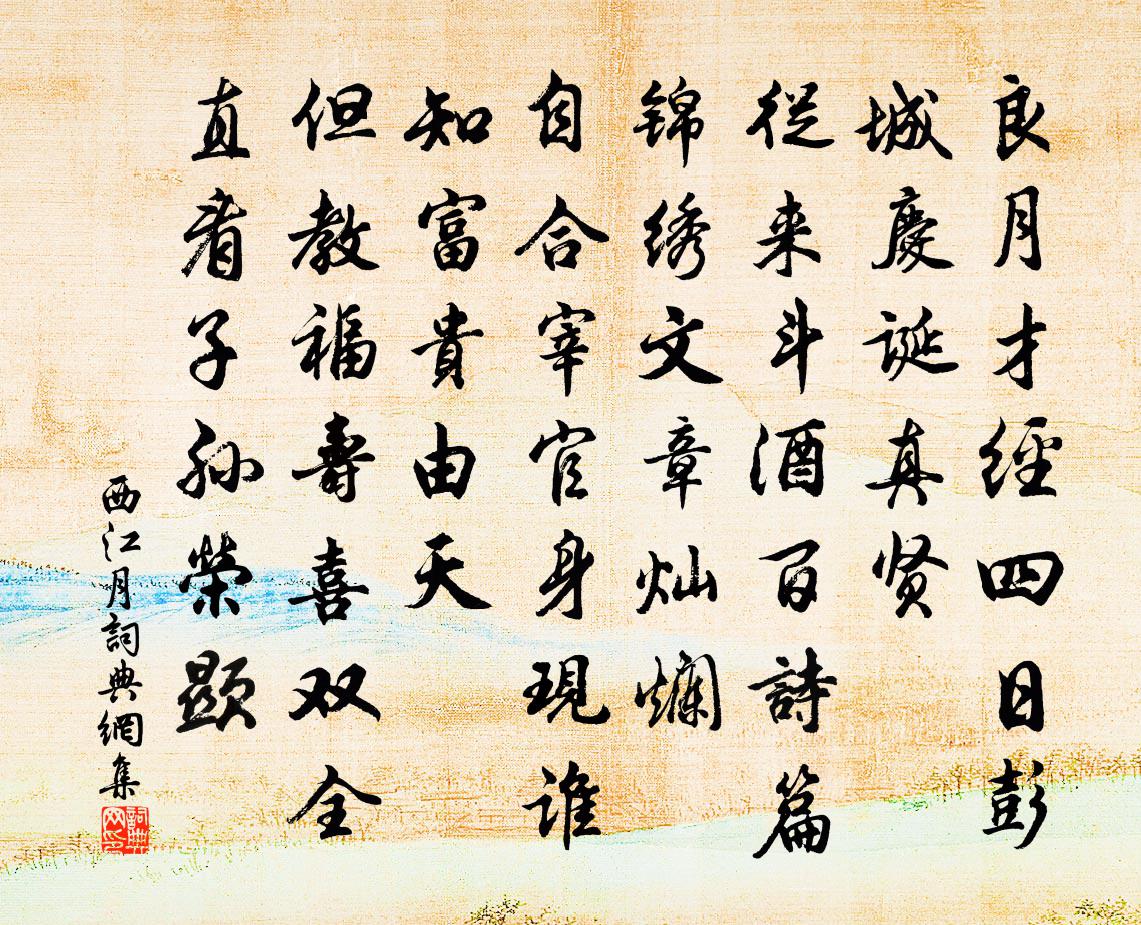 良月才經四日彭
城慶誕真贤
從来斗酒百詩篇
锦绣文章灿爛
自合宰官身現谁
知富貴由天
但教福壽喜双全
直看子孙榮顯
西江月詞典網集
詞典网印